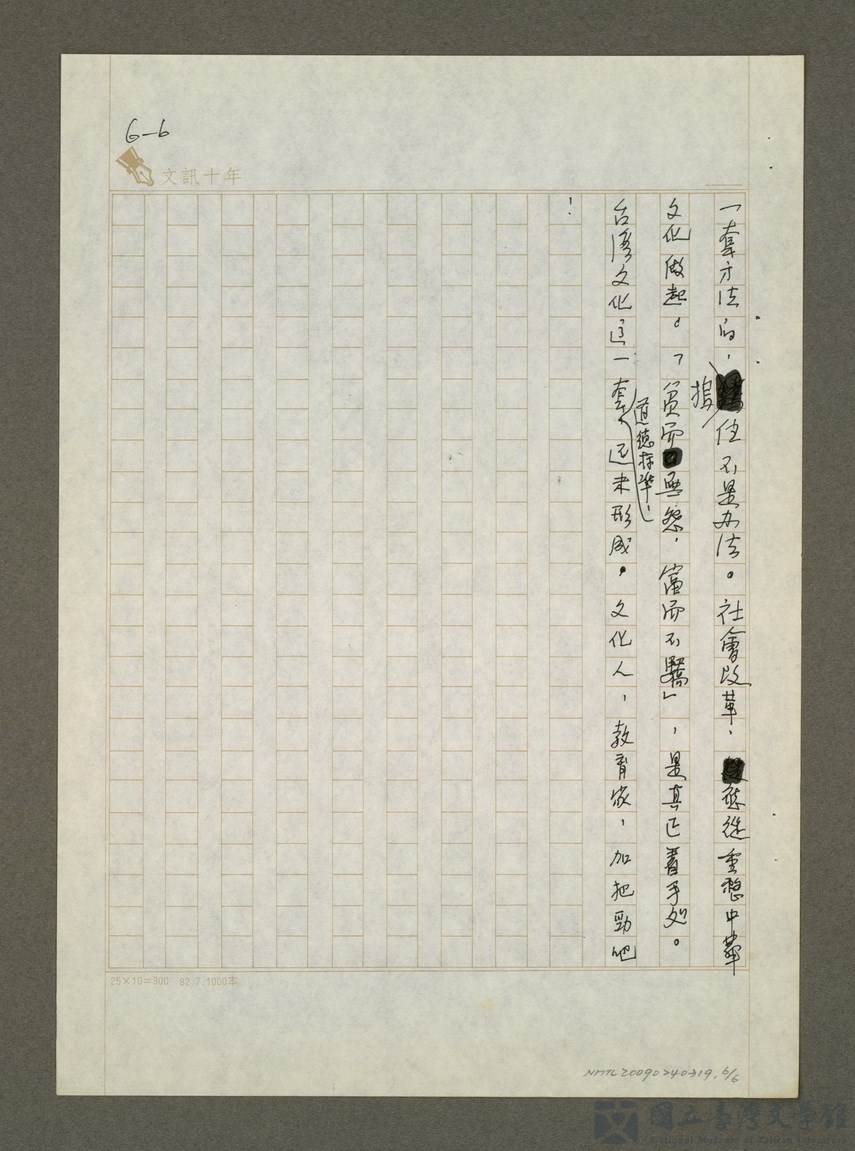 6-6
文訊十年
一套方法的，摀住不是办法。社會改革，應從重整中華
文化做起。「貧而無怨，富而不驕」，是真正着手処。
台灣文化這一套道德标準，还未形成。文化人，教育家，加把勁吧
！
25×10=300 82.7.1000本
NMTL20090240319.6/6
國立臺灣文學館
National Museum of Taiwan Literature